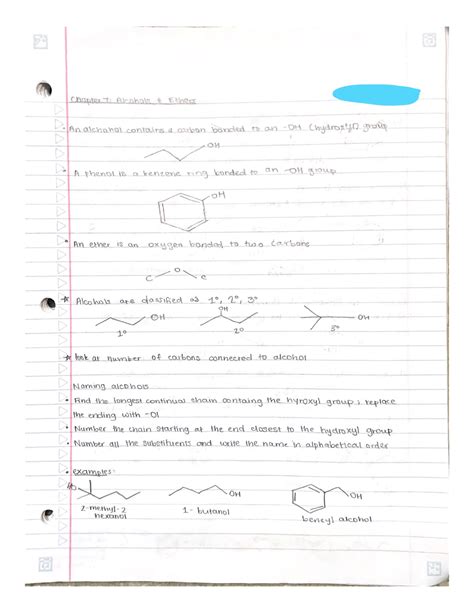 Chapter 7: Alcohols & Ethers
An alchohol contains a carbon bonded to an -OH (hydroxyl) group
OH
A Phenol is a benzene ring bonded to an -OH group
OH
An ether is an oxygen bonded to two carbons
O
C C
Alcohols are classified as 1°, 2°, 3°
OH OH OH
1° 2° 3°
look at number of carbons connected to alcohol
Naming alcohols
Find the longest continual chain containg the hyroxyl group ; replace
the ending with -ol
Number the chain starting at the end closest to the hydroxyl group
Number all the substituents and write the name in alphabetical order
examples:
HO OH OH
2-methyl-2 hexanol
1-butanol
benzyl alcohol